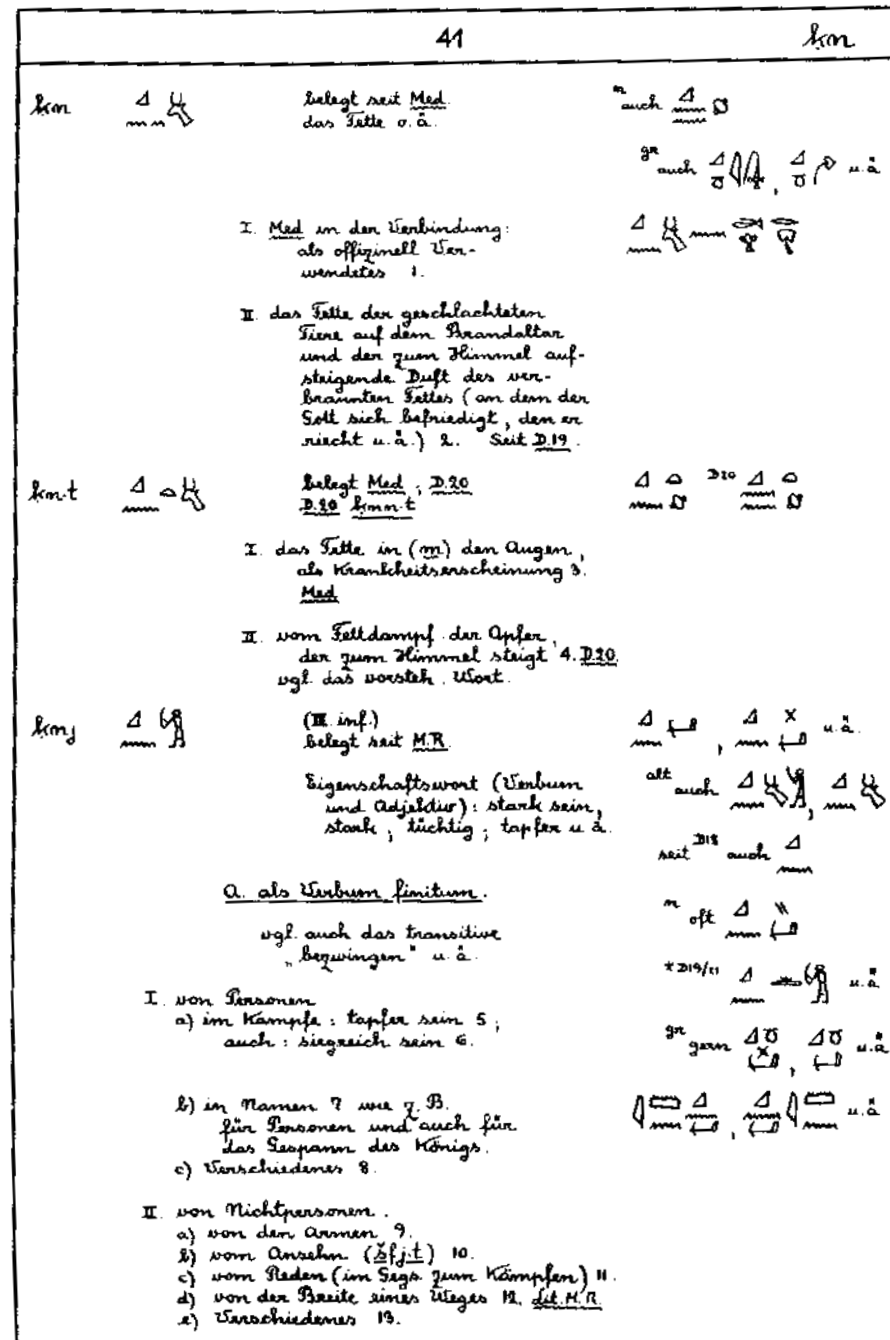 41 ḳn
ḳn belegt seit Med. n auch
das Fette o. ä.
gr auch , u. ä
I. Med in der Verbindung:
als offizinell Ver-
wendetes 1.
II. das Fette der geschlachteten
Tiere auf dem Brandaltar
und der zum Himmel auf-
steigende Duft des ver-
brannten Fettes (an dem der
Gott sich befriedigt, den er
riecht u. ä.) 2. Seit D.19.
ḳn.t belegt Med; D.20 D20
D.20 ḳnn.t
I. das Fette in (m) den Augen,
als Krankheitserscheinung 3.
Med
II. vom Fettdampf der Opfer,
der zum Himmel steigt 4. D.20.
vgl. das vorsteh. Wort.
ḳnj (III. inf.) , u. ä.
belegt seit M.R.
Eigenschaftswort (Verbum alt auch ,
und Adjektiv): stark sein,
stark; tüchtig; tapfer u. ä.
seit D18 auch
A. als Verbum finitum. n oft
vgl. auch das transitive
„bezwingen" u. ä.
* D19/21 u. ä
I. von Personen
a) im Kampfe: tapfer sein 5;
auch: siegreich sein 6. gr gern , u. ä
b) in Namen 7 wie z. B. , u. ä
für Personen und auch für
das Gespann des Königs.
c) Verschiedenes 8.
II. von Nichtpersonen.
a) von den Armen 9.
b) vom Ansehn (šfj.t) 10.
c) vom Reden (im Gegs. zum Kämpfen) 11.
d) von der Breite eines Weges 12. Lit. M.R.
e) Verschiedenes 13.